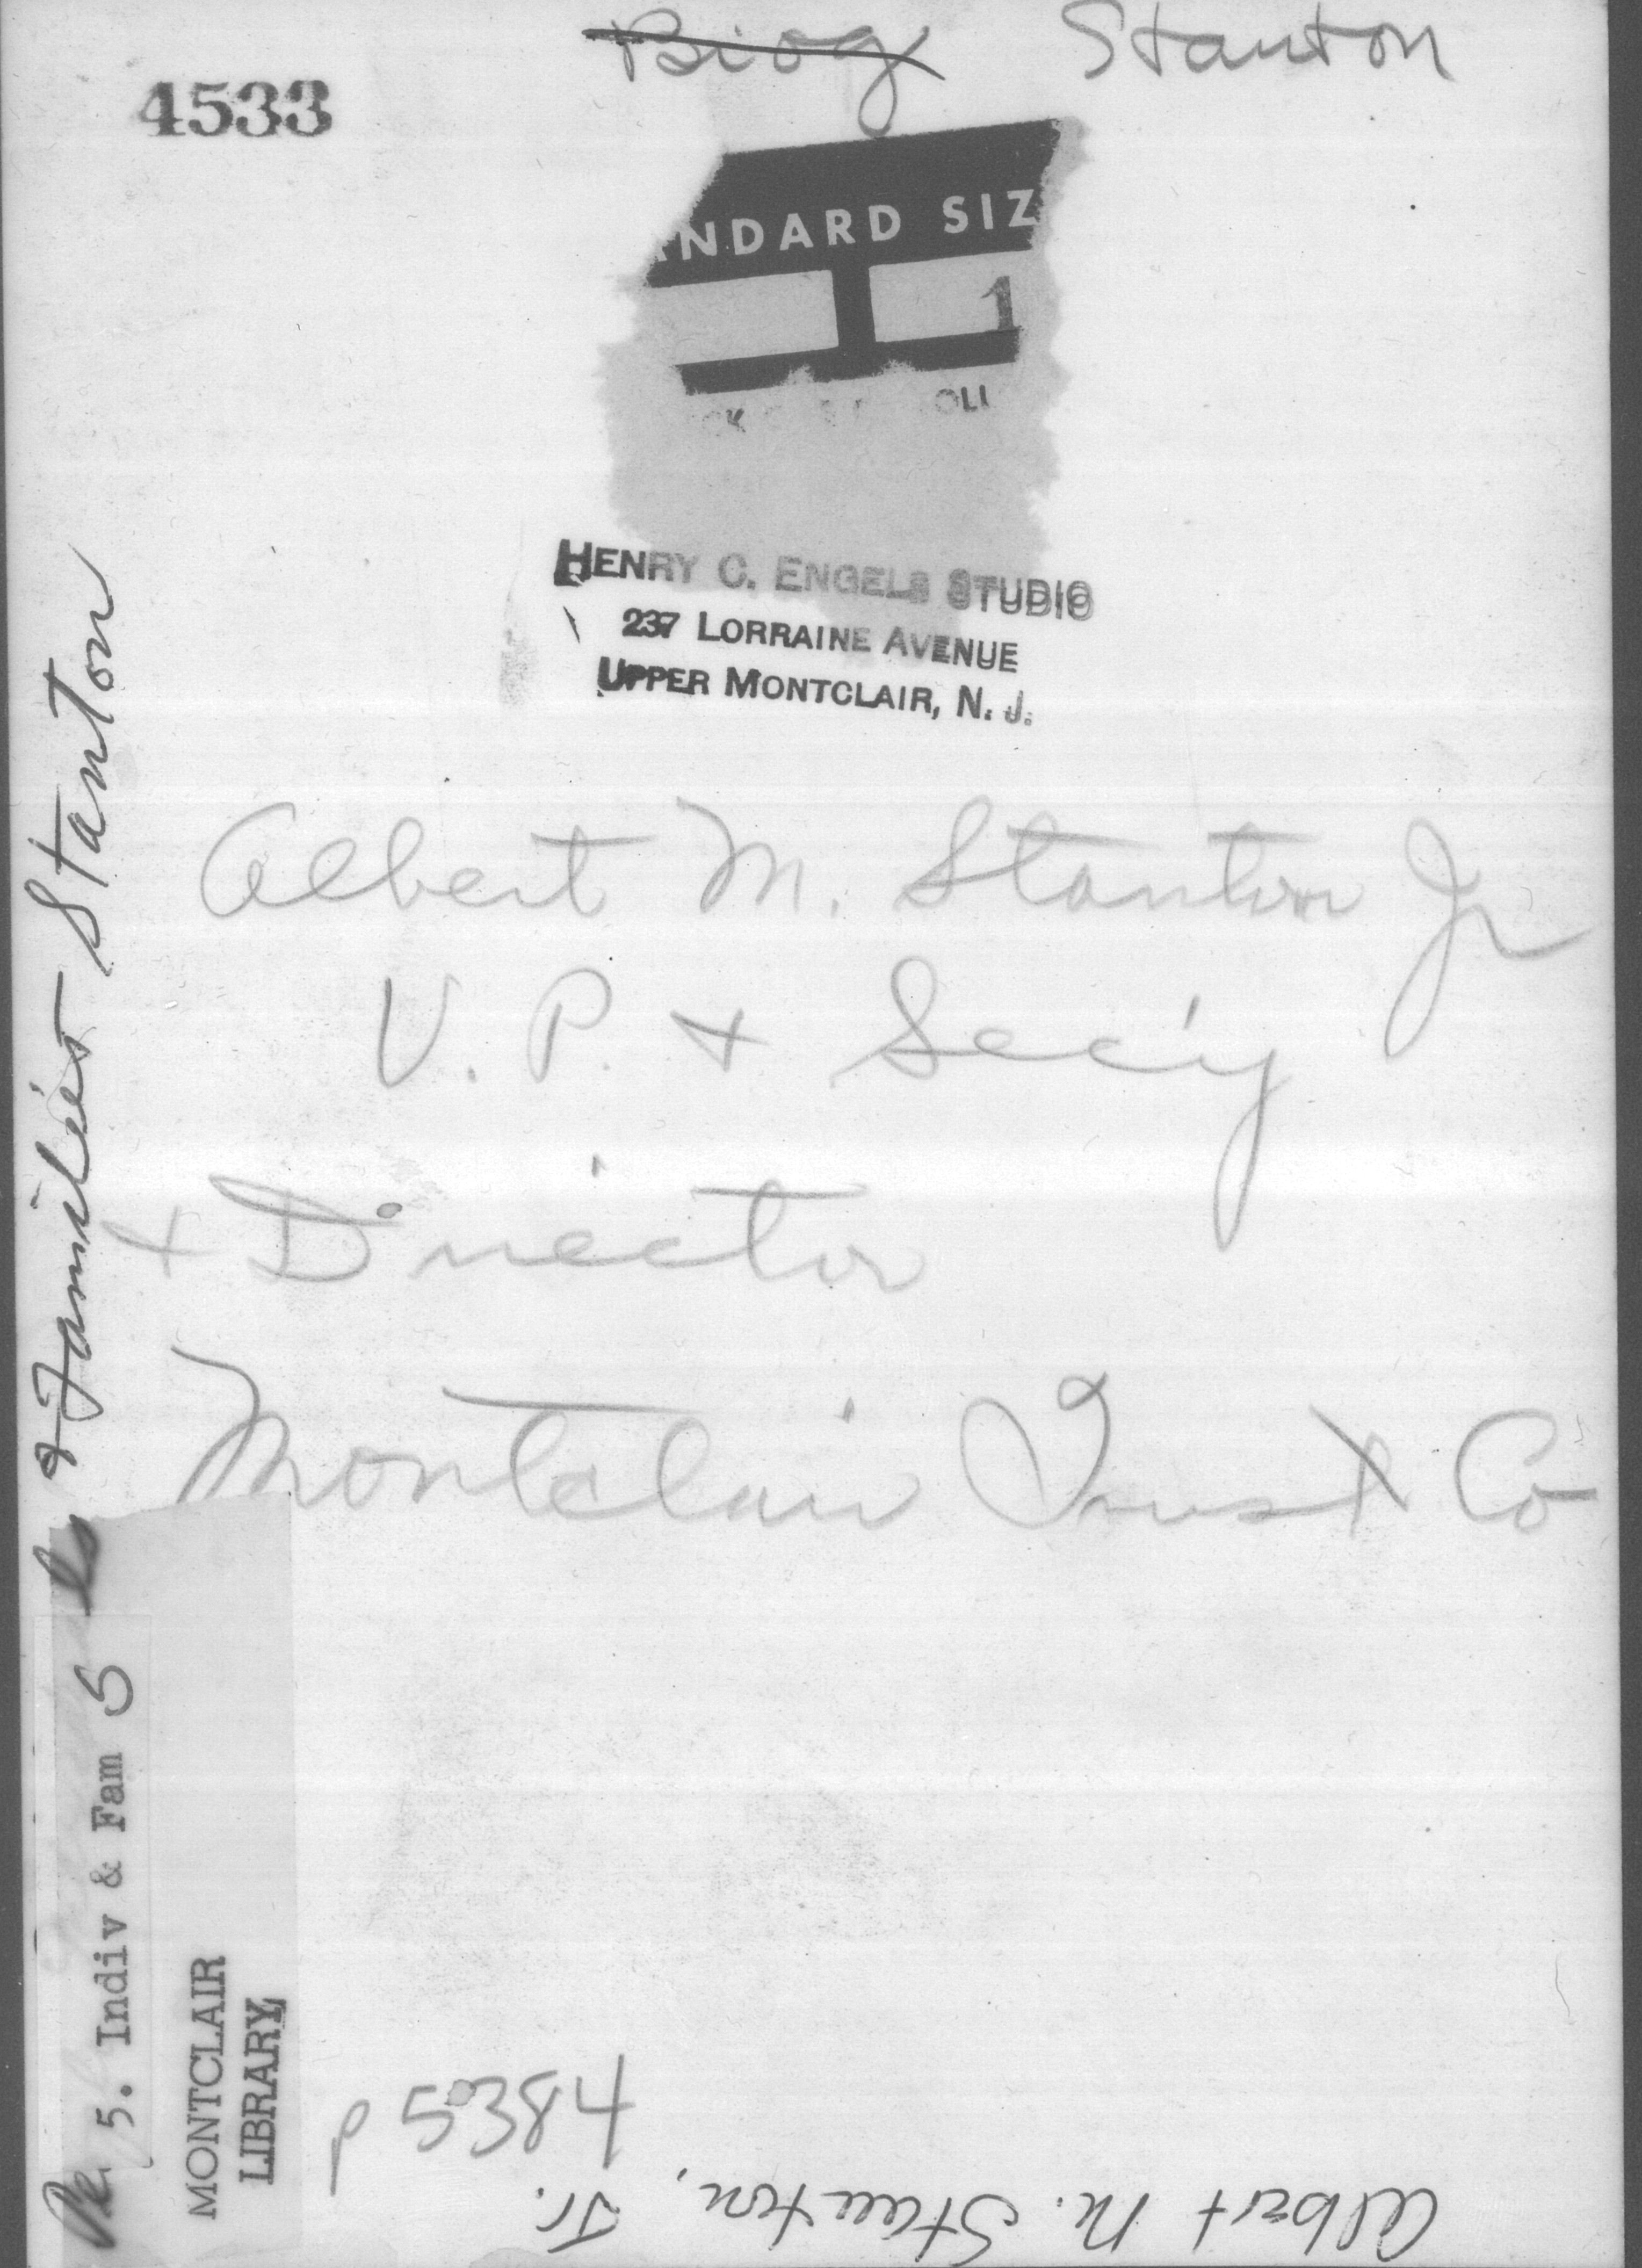 Biog Stanton
4533
NDARD SIZ
1
OLI
HENRY C. ENGELS STUDIO
237 LORRAINE AVENUE
UPPER MONTCLAIR, N. J.
Albert M. Stanton Jr
V. P. + Sec'y
+ Director
Montclair Trust Co
& Families - Stanton
5. Indiv & Fam S
MONTCLAIR
LIBRARY
Albert M. Stanton, Jr.